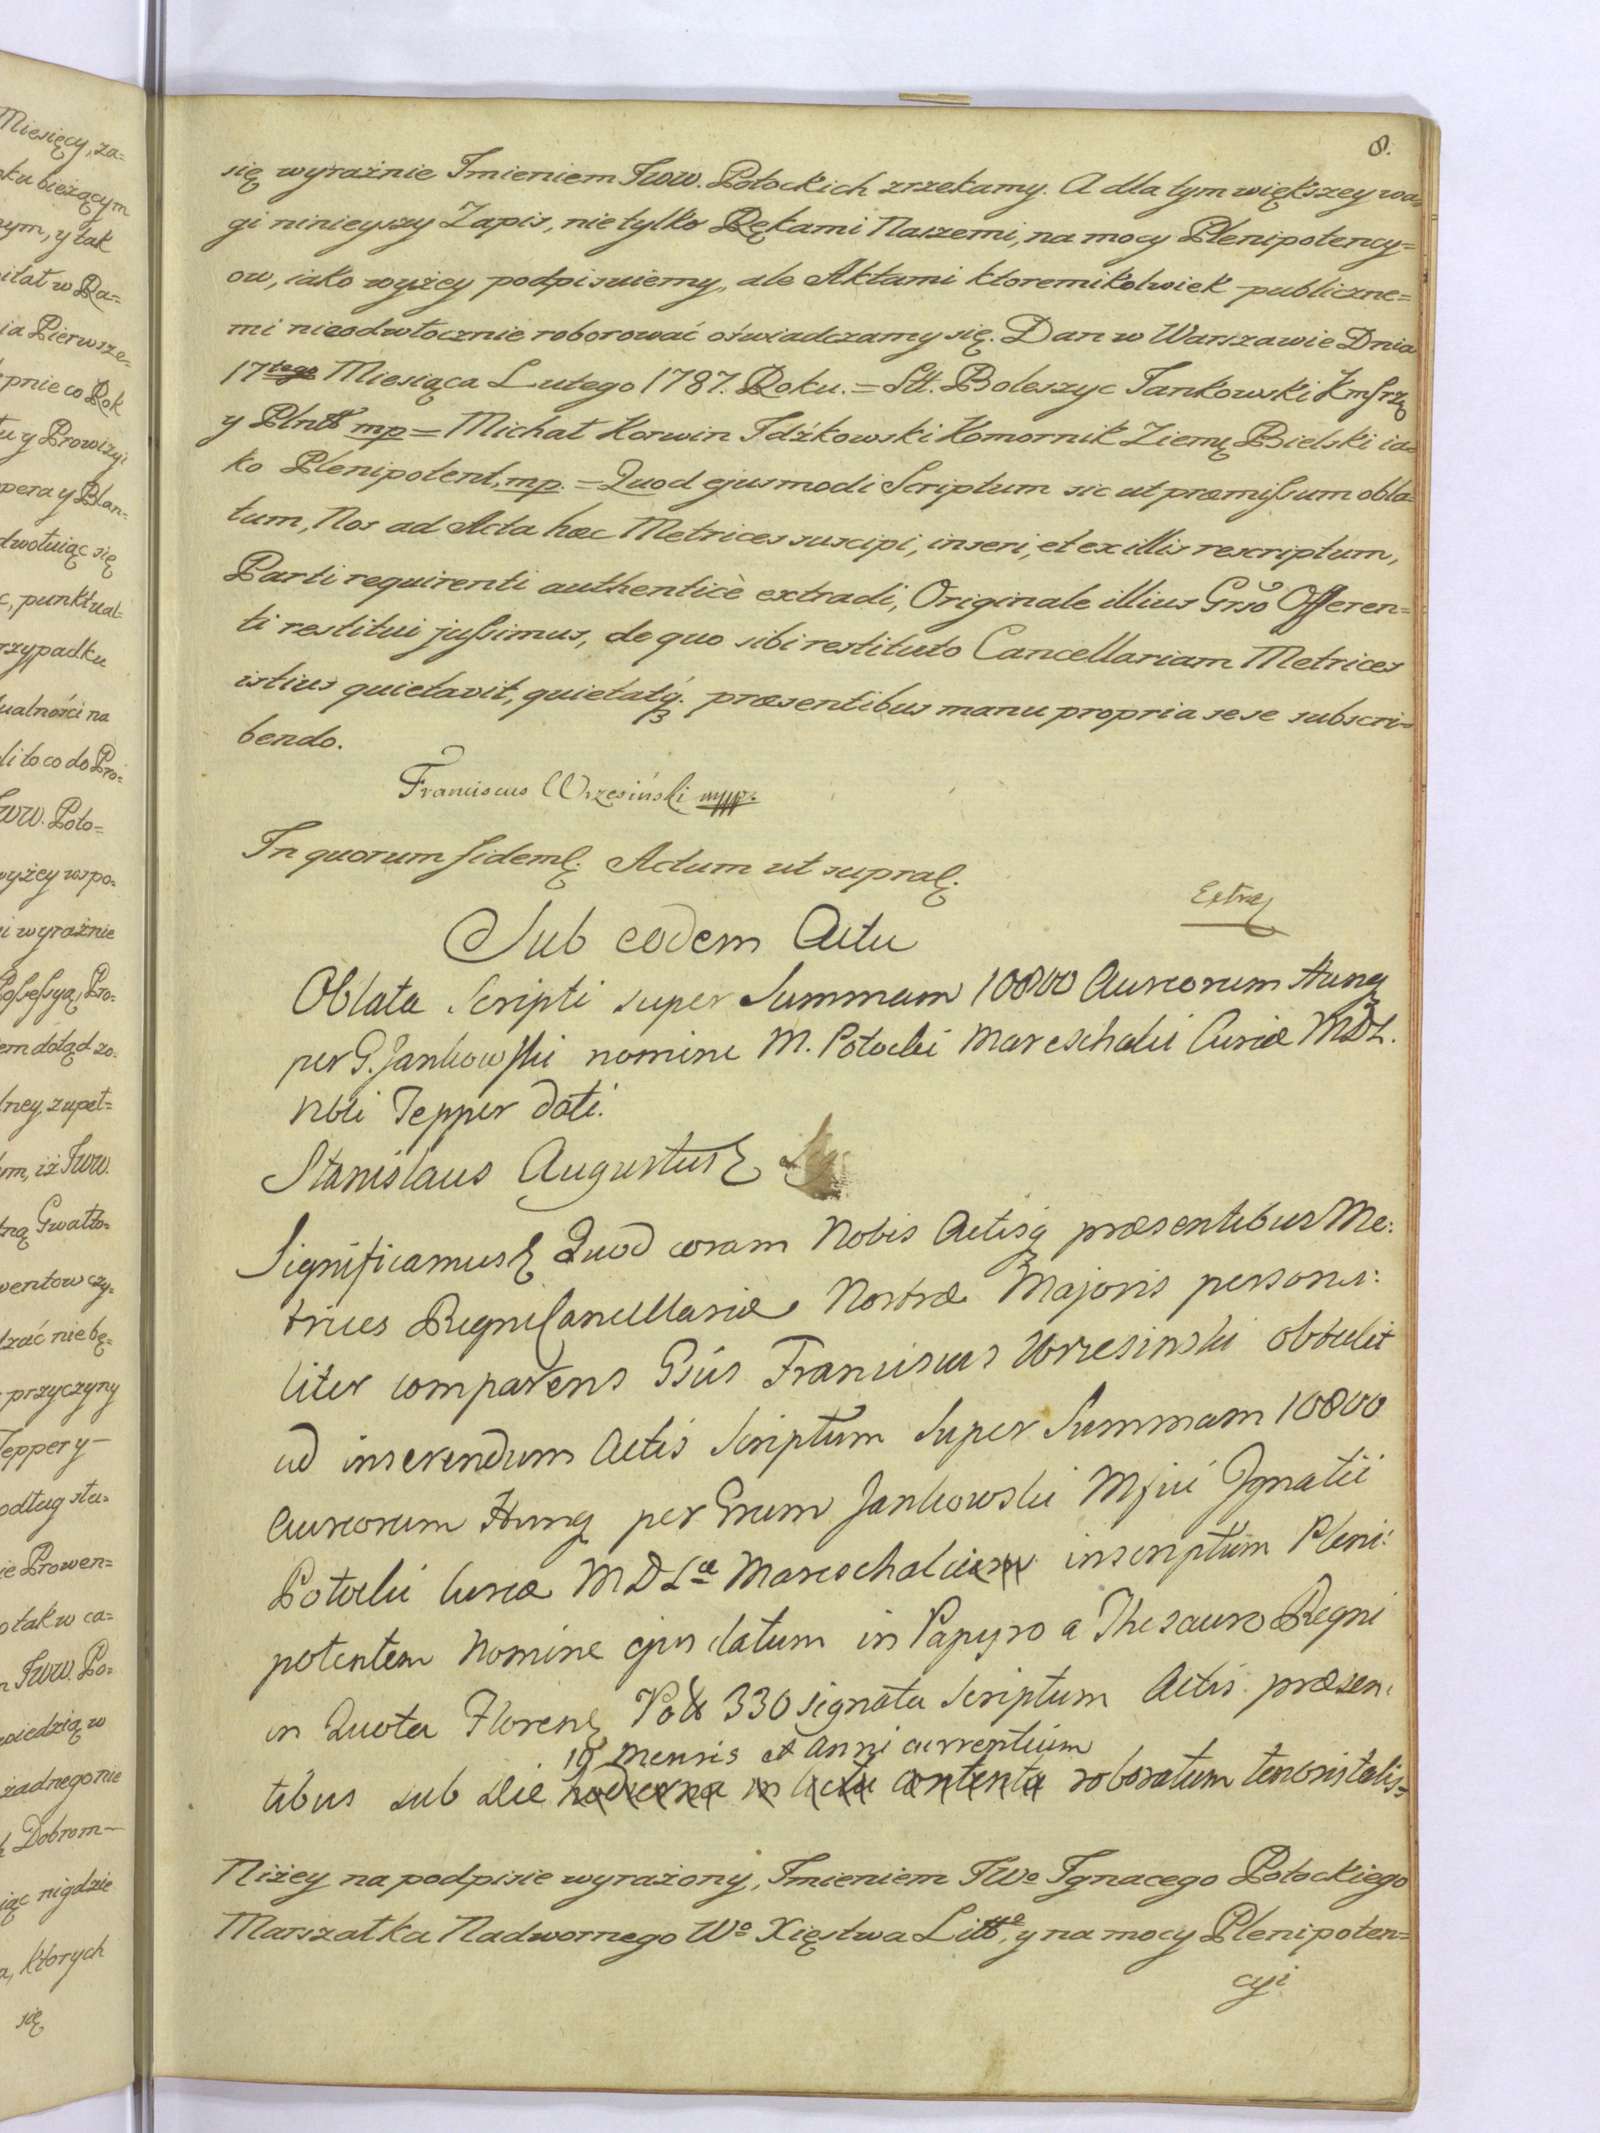 Miesięcy, za=
ku bieżącym
nym, y tak
w Ra=
ia Pierwsze=
pnie co Rok
tu y Prowizyi
pera y Blan=
dwołuiąc się
c, punktual=
rzypadku
ualności na
li to co do Pro=
JWW. Poto=
wyżey wspo=
i wyraźnie
Possessyą, Pro=
em dotąd zo=
lney, zupeł=
om, iż JWW.
tną Gwałto=
wentow czy=
dzać nie bę=
przyczyny
Tepper y —
odług sta=
ie Prowen=
o tak w ca=
n JWW. Po=
wiedzią w
żadnego nie
h Dobrom —
iąc nigdzie
a, których
się
8.
się wyraźnie Imieniem JWW. Potockich zrzekamy. A dla tym większey wa=
gi ninieyszy Zapis, nie tylko Rękami Naszemi, na mocy Plenipotency=
ow, iako wyżey podpisuiemy, ale Aktami ktoremikolwiek publiczne=
mi nieodwłocznie roborować oświadczamy się. Dan w Warszawie Dnia
17tego Miesiąca Lutego 1787. Roku. = Stt. Boleszyc Jankowski
y Plntt mp = Michał Korwin Idźkowski Komornik Ziemę Bielski ia=
ko Plenipotent, mp. = Quod ejusmodi Scriptum sic ut præmissum obla=
tum, Nos ad Acta hæc Metrices suscipi, inseri, et ex illis rescriptum,
Parti requirenti authenticè extradi, Originale illius Grso Offeren=
ti restitui jussimus, de quo sibi restituto Cancellariam Metrices
istius quietavit, quietatq. præsentibus manu propria sese subscri=
bendo.
Franciscus Wrzesiński mpp.
In quorum fidem Actum ut supra
Extra
Sub eodem Actu
Oblata Scripti super Summam 10800 Aureorum Hung
per G. Jankowski nomine M. Potocki Mareschalii Curiæ MDL.
Nbli Tepper dati.
Stanislaus Augustus
Significamus Quod coram Nobis Actisq præsentibus Me:
trices Regni Cancellariæ Nostræ Majoris persona:
liter comparens Gsus Franciscus Wrzesinski obtulit
ad inserendum Actis Scriptum super Summam 10800
Aureorum Hung per Grum Jankowski Mfici Ignatii
Potocki Curiæ M D Læ Mareschalci inscriptum Pleni:
potentem Nomine ejus datum in Papyro a Thesauro Regni
in Quota Floren Poll 330 signata Scriptum Actis præsen:
19 mensis et Anni currentium
tibus sub die hodierna in Actu contenta roboratum tenoris talis =
Niżey na podpisie wyrażony, Imieniem JWo Ignacego Potockiego
Marszałka Nadwornego Wo Xięstwa Litto, y na mocy Plenipoten=
cyi